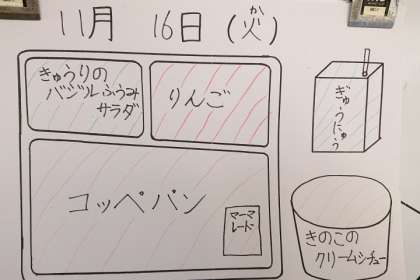 11月 16日 (火)
か
きゅうりの
バジルふうみ
サラダ
りんご
ぎゅうにゅう
コッペパン
マーマ
レード
きのこの
クリームシチュー